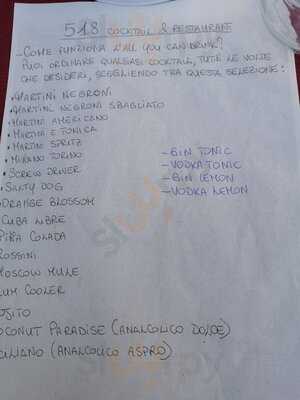 518 COCKTAIL & RESTAURANT
- COME FUNZIONA L'ALL YOU CAN DRINK?
PUOI ORDINARE QUALSIASI COCKTAIL, TUTTE LE VOLTE
CHE DESIDERI, SCEGLIENDO TRA QUESTA SELEZIONE:
• MARTINI NEGRONI
• MARTINI NEGRONI SBAGLIATO
• MARTINI AMERICANO
• MARTINI E TONICA
• MARTINI SPRITZ
• MILANO TORINO
• SCREW DRIVER
• SALTY DOG
ORANGE BLOSSOM
CUBA LIBRE
PIÑA COLADA
ROSSINI
MOSCOW MULE
RUM COOLER
OJITO
OCONUT PARADISE (ANALCOLICO DOLCE)
CILIANO (ANALCOLICO ASPRO)
- GIN TONIC
- VODKA TONIC
- GIN LEMON
- VODKA LEMON